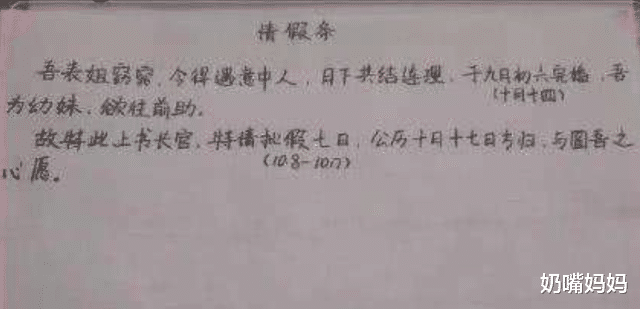 请假条
吾表姐窈窕,今得遇意中人,目下共结连理,于九月初六完婚,吾
(十月十四)
为幼妹,欲往前助。
故特此上书长官,特请批假七日,公历十月十七日方归,与圆吾之
(10.8-10.17)
心愿。
奶嘴妈妈